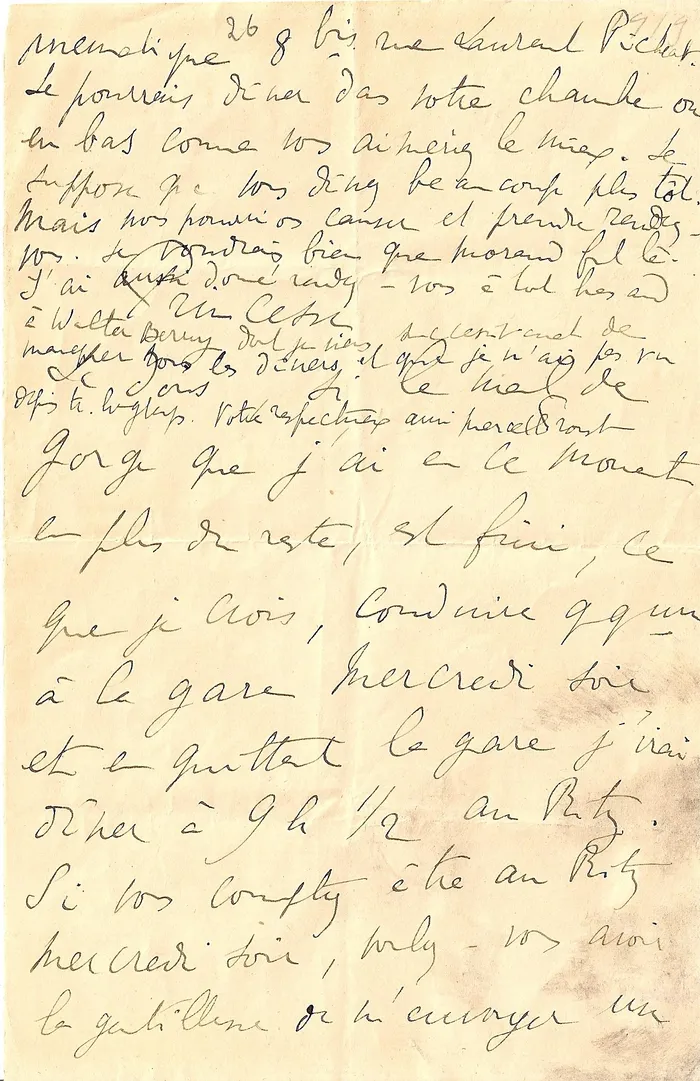 pneumatique 8 bis rue Laurent Pichat.
26
Je pourrais dîner das votre chambre ou
en bas come vos aimeriez le mieux. Je
suppose que vos dînez beaucoup plus tôt.
Mais nos pourrios causer et prendre rendez-
vos. Je voudrais bien que Morand fut là.
J'ai aussi doné rendez-vos à tout hasard
à Walter Berry dot je viens successivemet de
manquer tous les dîners et que je n'ai pas vu
depuis tr. lgtps. Votre respectueux ami Marcel Proust
Si le mal de
gorge que j'ai en ce moment
en plus du reste, est fini, ce
que je crois, conduire qqun
à la gare Mercredi soir
et en quittant la gare j'irai
dîner à 9 h 1/2 au Ritz.
Si vos comptez être au Ritz
Mercredi soir, voulez-vos avoir
la gentillesse de m'envoyer un